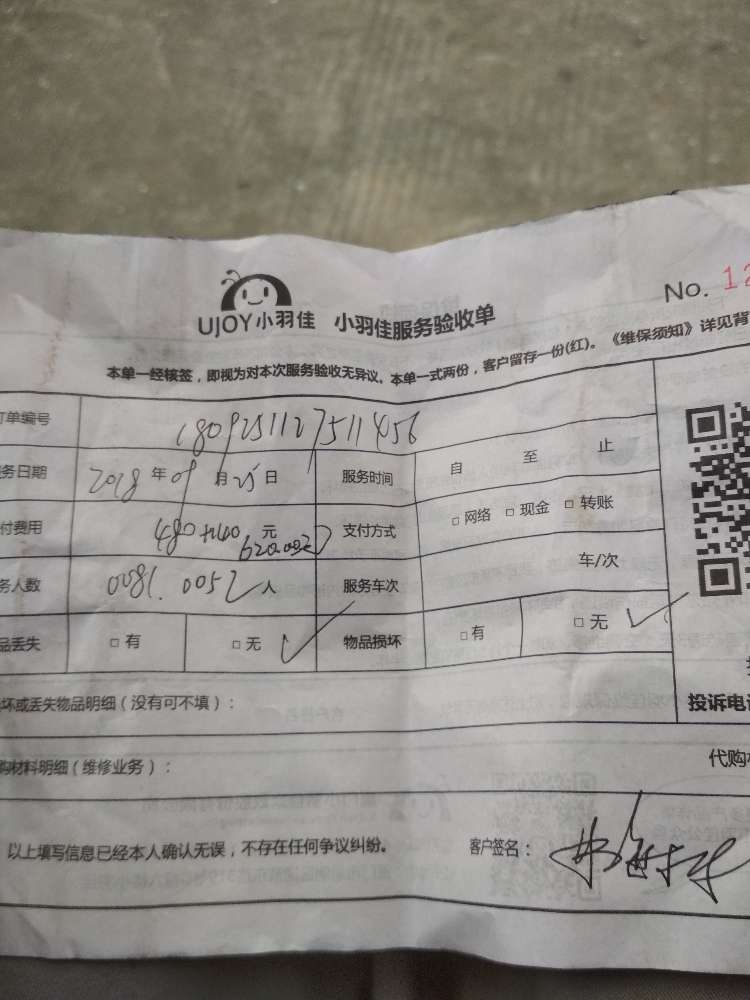 No. 12
UJOY小羽佳 小羽佳服务验收单
本单一经核签，即视为对本次服务验收无异议。本单一式两份，客户留存一份(红)。《维保须知》详见背
订单编号 180925112751456
务日期 2018 年 09 月 25 日 服务时间 自 至 止
付费用 元 支付方式 □ 网络 □ 现金 □ 转账
务人数 0081.0052 人 服务车次 车/次
品丢失 □ 有 □ 无 ✓ 物品损坏 □ 有 □ 无 ✓
坏或丢失物品明细（没有可不填）：
投诉电话
购材料明细（维修业务）：
代购
以上填写信息已经本人确认无误，不存在任何争议纠纷。 客户签名：